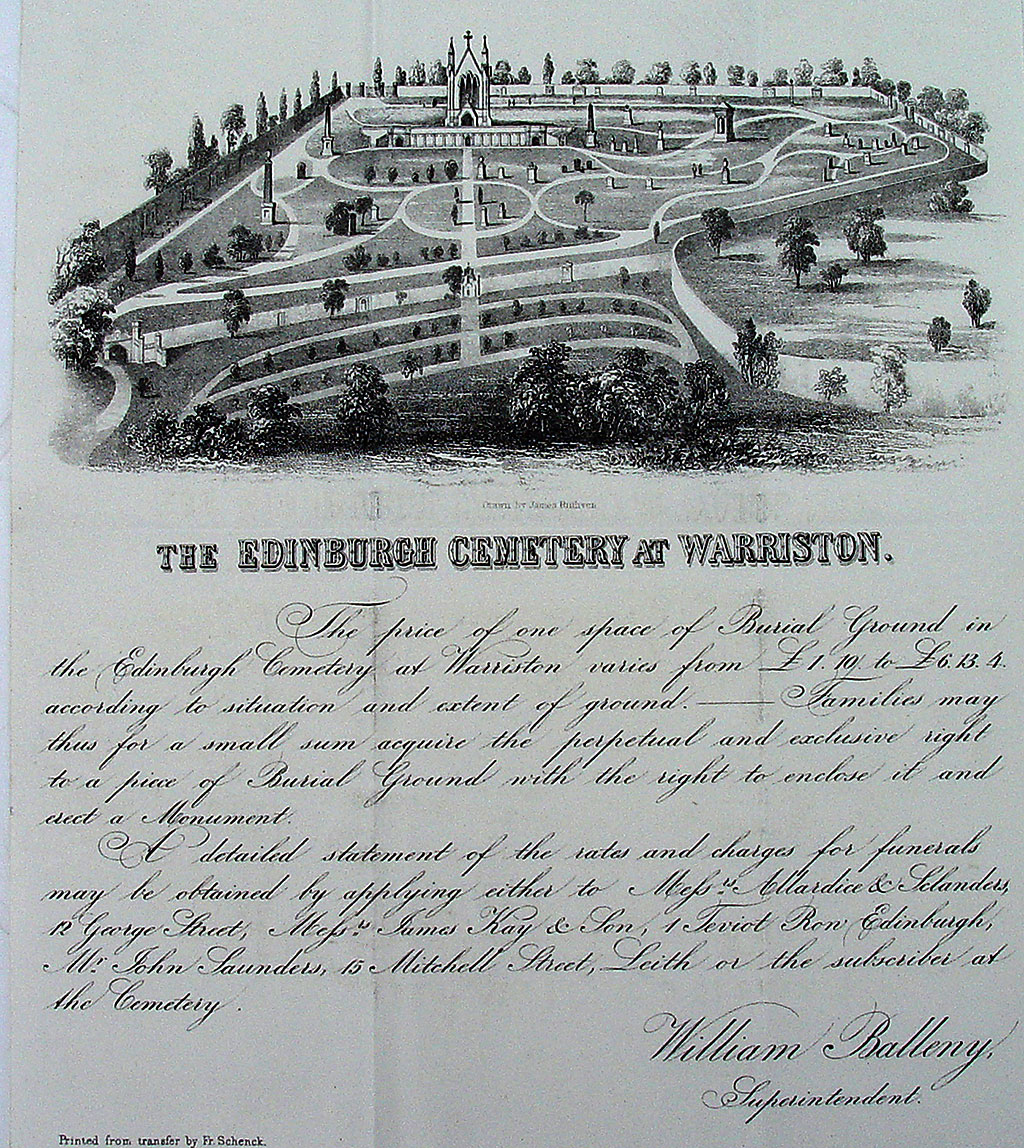 Drawn by James Ruthven
THE EDINBURGH CEMETERY AT WARRISTON.
The price of one space of Burial Ground in
the Edinburgh Cemetery at Warriston varies from £1.10. to £6.13.4.
according to situation and extent of ground. — Families may
thus for a small sum acquire the perpetual and exclusive right
to a piece of Burial Ground with the right to enclose it and
erect a Monument.
A detailed statement of the rates and charges for funerals
may be obtained by applying either to Messrs Allardice & Sclanders,
12 George Street, Messrs James Kay & Son, 1 Teviot Row Edinburgh,
Mr. John Saunders, 15 Mitchell Street, Leith or the subscriber at
the Cemetery.
William Balleny,
Superintendent.
Printed from transfer by Fr. Schenck.